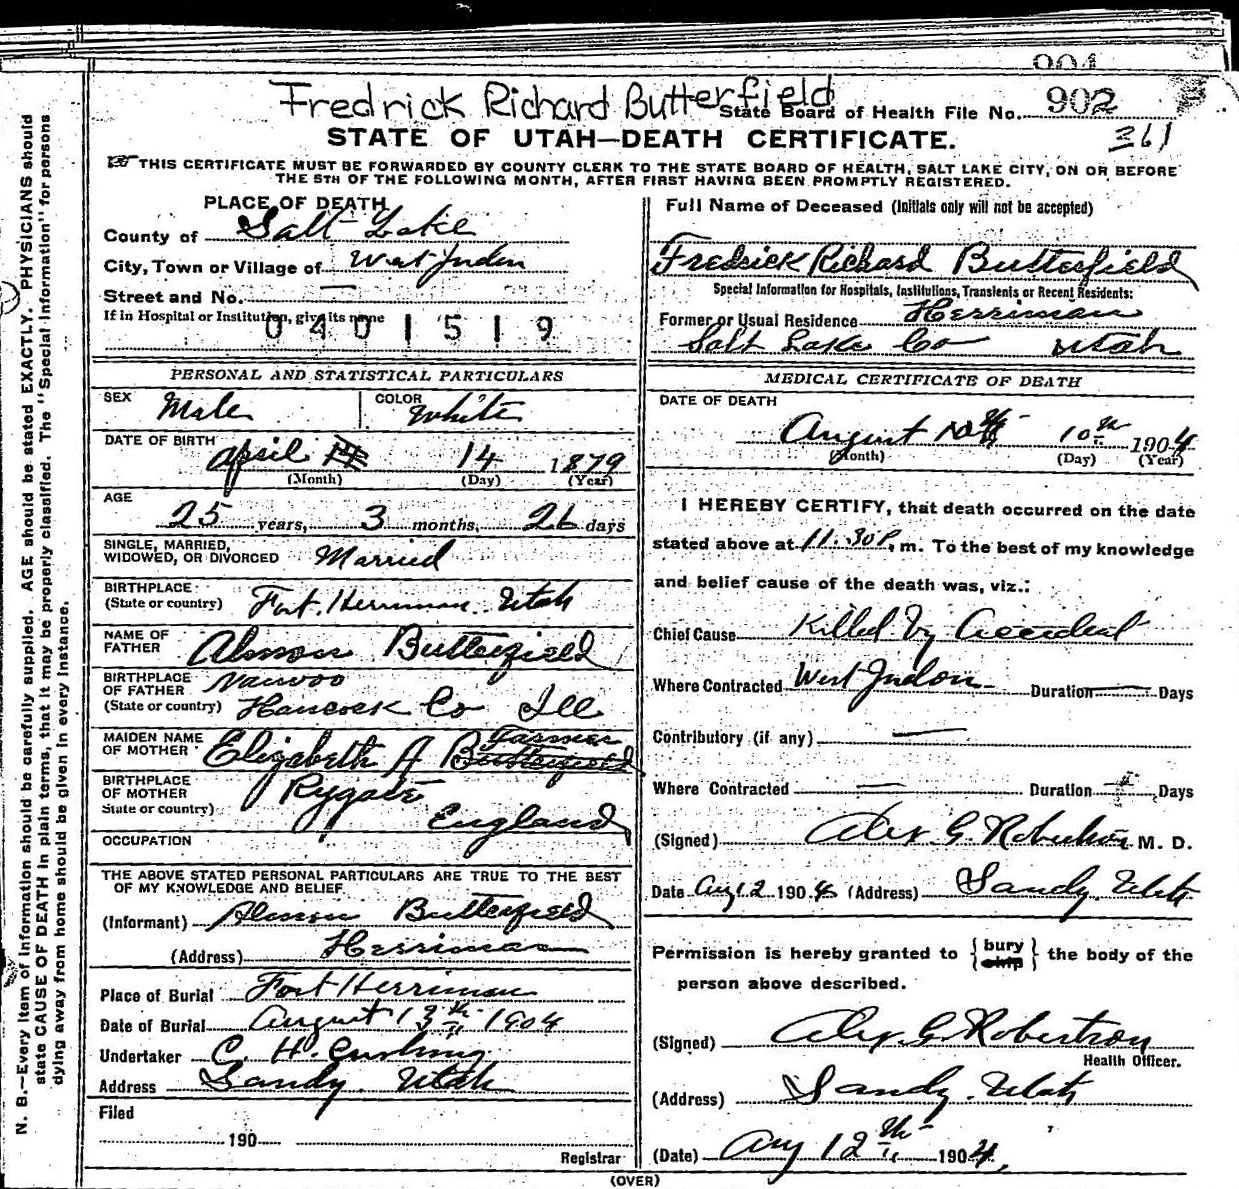 904
Fredrick Richard Butterfield
State Board of Health File No. 902
361
STATE OF UTAH—DEATH CERTIFICATE.
THIS CERTIFICATE MUST BE FORWARDED BY COUNTY CLERK TO THE STATE BOARD OF HEALTH, SALT LAKE CITY, ON OR BEFORE
THE 5TH OF THE FOLLOWING MONTH, AFTER FIRST HAVING BEEN PROMPTLY REGISTERED.
N. B.—Every item of information should be carefully supplied. AGE should be stated EXACTLY. PHYSICIANS should
state CAUSE OF DEATH in plain terms, that it may be properly classified. The "Special Information" for persons
dying away from home should be given in every instance.
PLACE OF DEATH
County of Salt Lake
City, Town or Village of West Jordan
Street and No. —
If in Hospital or Institution, give its name
0401519
PERSONAL AND STATISTICAL PARTICULARS
SEX Male COLOR White
DATE OF BIRTH
April 14 1879
(Month) (Day) (Year)
AGE
25 years, 3 months, 26 days
SINGLE, MARRIED,
WIDOWED, OR DIVORCED Married
BIRTHPLACE
(State or country) Fort Herriman Utah
NAME OF
FATHER Almon Butterfield
BIRTHPLACE
OF FATHER Nauvoo
(State or country) Hancock Co Ill
MAIDEN NAME
OF MOTHER Elizabeth A Butterfield Farmer
BIRTHPLACE
OF MOTHER Rygate
State or country) England
OCCUPATION
THE ABOVE STATED PERSONAL PARTICULARS ARE TRUE TO THE BEST
OF MY KNOWLEDGE AND BELIEF.
(Informant) Almon Butterfield
(Address) Herriman
Place of Burial Fort Herriman
Date of Burial August 13th 1904
Undertaker C. H. Cushing
Address Sandy Utah
Filed
190
Registrar
Full Name of Deceased (Initials only will not be accepted)
Fredrick Richard Butterfield
Special Information for Hospitals, Institutions, Transients or Recent Residents:
Former or Usual Residence Herriman
Salt Lake Co Utah
MEDICAL CERTIFICATE OF DEATH
DATE OF DEATH
August 10th 1904
(Month) (Day) (Year)
I HEREBY CERTIFY, that death occurred on the date
stated above at 11.30 P. m. To the best of my knowledge
and belief cause of the death was, viz.:
Chief Cause Killed by Accident
Where Contracted West Jordon Duration — Days
Contributory (if any) —
Where Contracted — Duration Days
(Signed) Alex. G. Robertson M. D.
Date Aug 12 1904 (Address) Sandy. Utah
Permission is hereby granted to {bury ship} the body of the
person above described.
(Signed) Alex. G. Robertson
Health Officer.
(Address) Sandy. Utah
(Date) Aug 12th 1904.
(OVER)